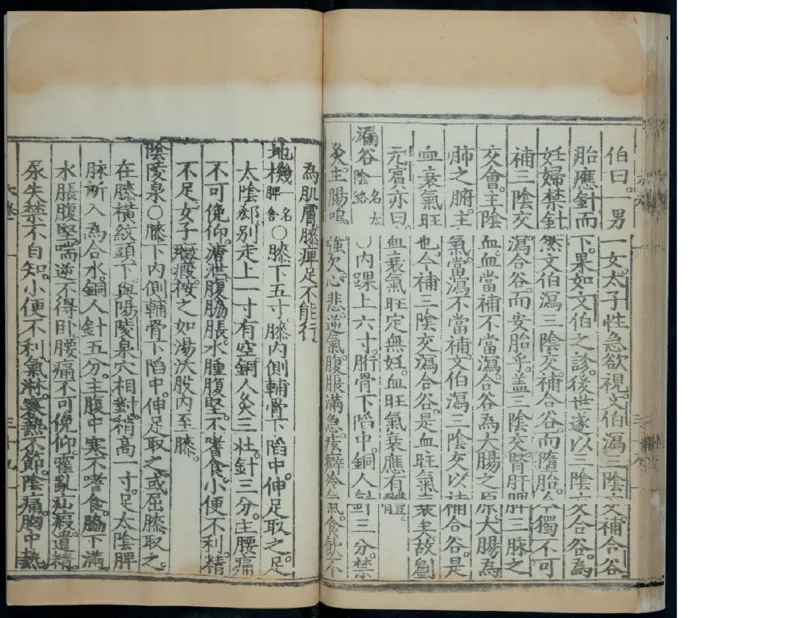 伯曰。一男一女。太子性急欲視。文伯瀉三陰交。補合谷
胎應針而下。果如文伯之診。後世遂以三陰交合谷。為
妊婦禁針。然文伯瀉三陰交。補合谷而墮胎。今獨不可
補三陰交瀉合谷。而安胎乎。蓋三陰交。腎肝脾三脉之
交會。主陰血。血當補不當瀉。合谷為大腸之原。大腸為
肺之腑。主氣。當瀉不當補。文伯瀉三陰交以補合谷。是
血衰氣旺也。今補三陰交瀉合谷。是血旺氣衰矣。故劉
元賓亦曰。血衰氣旺定無妊。血旺氣衰應有體。
漏谷一名太陰絡〇內踝上六寸。胻骨下陷中。銅人針三分。禁
灸。主腸鳴。強欠。心悲逆氣。腹脹滿急。痃癖冷氣。食飲不
為肌膚。膝痺足不能行。
地機一名脾舍〇膝下五寸。膝內側輔骨下陷中。伸足取之。足
太陰郄。別走上一寸有空。銅人灸三壯。針三分。主腰痛
不可俛仰。溏泄。腹脇脹。水腫腹堅。不嗜食。小便不利。精
不足。女子癥瘕。按之如湯沃股內至膝。
陰陵泉〇膝下內側輔骨下陷中。伸足取之。或屈膝取之。
在膝橫紋頭下。與陽陵泉穴相對。稍高一寸。足太陰脾
脉所入為合水。銅人針五分。主腹中寒。不嗜食。脇下滿
水脹腹堅。喘逆不得卧。腰痛不可俛仰。霍亂。疝瘕。遺精。
尿失禁不自知。小便不利。氣淋。寒熱不節。陰痛。胸中熱
三十九